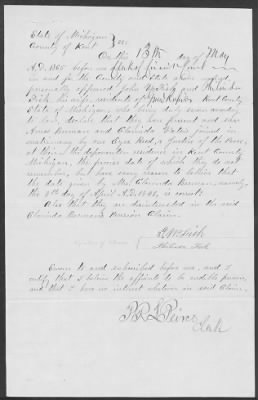 State of Michigan
County of Kent } ss.
On the 13th day of May
A.D. 1865 before me Clerk of Circuit Court
in and for the County and State above named,
personally appeared John W Fisk and
Fisk his wife, residents of Kent County
State of Michigan, who being duly sworn
to law, declare that they were present and saw
Amos Bowman and Clarinda joined in
matrimony by one Ezra Reed, a Justice of the Peace,
at this deponents residence in Kent County
Michigan, the precise date of which they do not
remember, but have every reason to believe that
the date given by Mrs Clarinda Bowman, namely,
the 9th day of April A.D. 1846, is correct.
Also that they are disinterested in the said
Clarinda Bowman's Pension Claim.
J W Fisk
Fisk
Sworn to and subscribed before me, and I
certify that I believe the affiants to be credible persons,
and that I have no interest whatever in said Claim.
P R L Peirce
Clerk